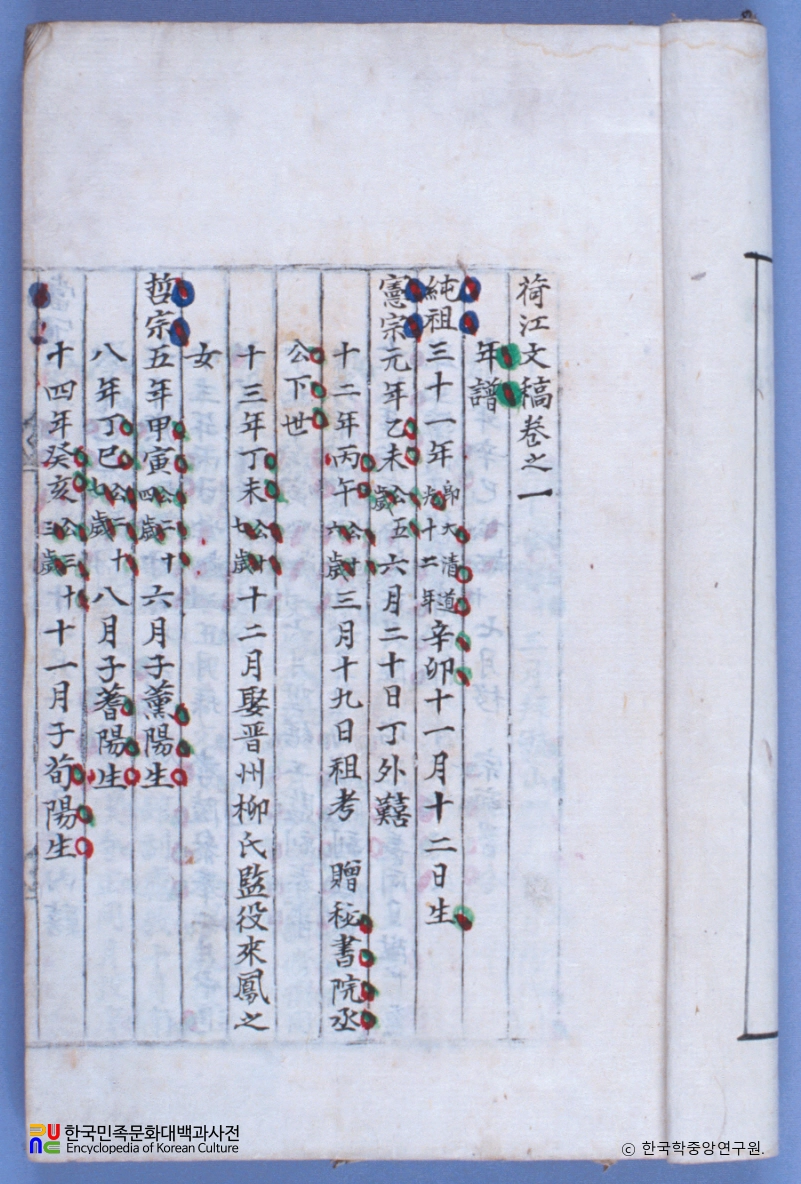 荷江文稿卷之一
年譜
純祖三十一年卽大淸道光十二年辛卯十一月十二日生
憲宗元年乙未公五歲六月二十日丁外艱
十二年丙午公十六歲三月十九日祖考 贈秘書院丞
公下世
十三年丁未公十七歲十二月娶晋州柳氏監役來鳳之
女
哲宗五年甲寅公二十四歲六月子薰陽生
八年丁巳公二十七歲八月子蓍陽生
十四年癸亥公三十三歲十一月子荀陽生
한국민족문화대백과사전
Encyclopedia of Korean Culture
© 한국학중앙연구원.